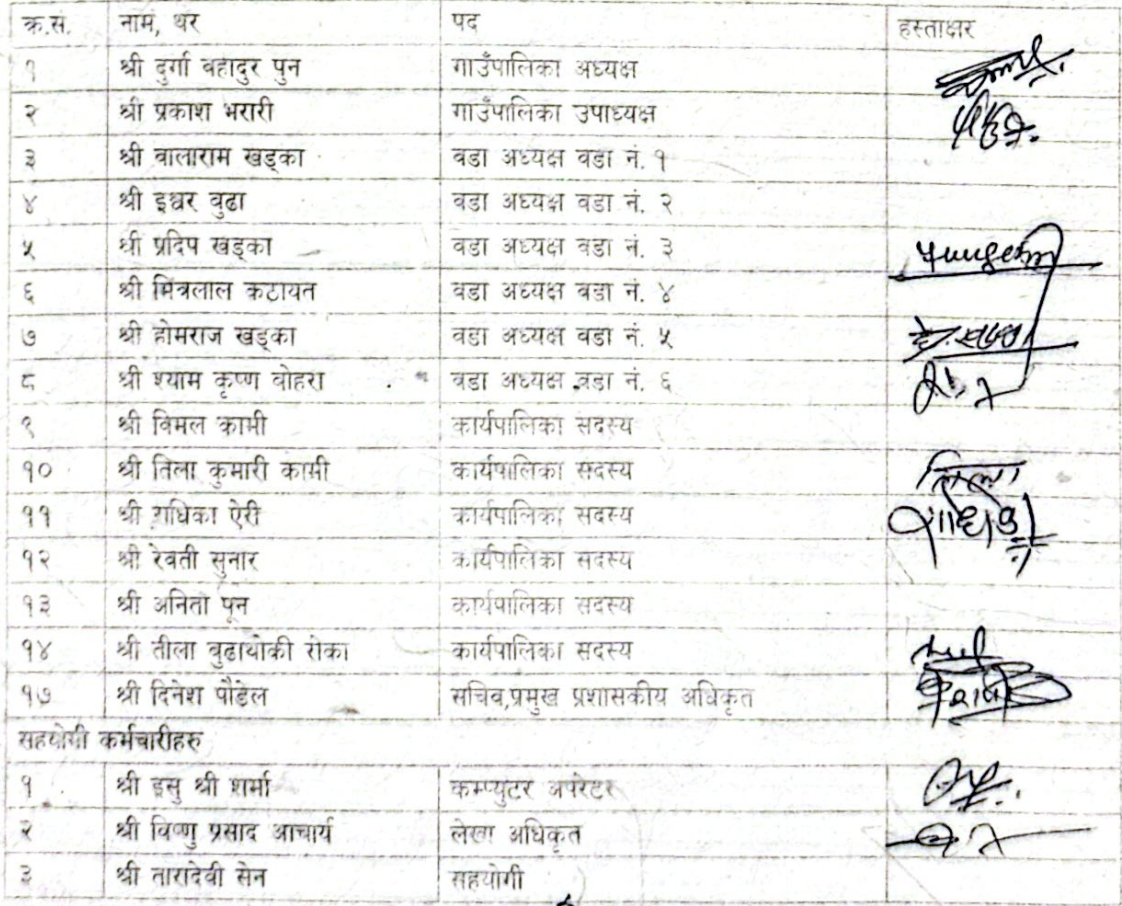 क्र.सं. नाम, थर पद हस्ताक्षर
१ श्री दुर्गा वहादुर पुन गाउँपालिका अध्यक्ष
२ श्री प्रकाश भरारी गाउँपालिका उपाध्यक्ष
३ श्री वालाराम खड्का वडा अध्यक्ष वडा नं. १
४ श्री इश्वर वुढा वडा अध्यक्ष वडा नं. २
५ श्री प्रदिप खड्का वडा अध्यक्ष वडा नं. ३
६ श्री मित्रलाल कटायत वडा अध्यक्ष वडा नं. ४
७ श्री होमराज खड्का वडा अध्यक्ष वडा नं. ५
८ श्री श्याम कृष्ण वोहरा वडा अध्यक्ष वडा नं. ६
९ श्री विमल कामी कार्यपालिका सदस्य
१० श्री तिला कुमारी कामी कार्यपालिका सदस्य तिला
११ श्री राधिका ऐरी कार्यपालिका सदस्य राधिका
१२ श्री रेवती सुनार कार्यपालिका सदस्य
१३ श्री अनिता पून कार्यपालिका सदस्य
१४ श्री तीला वुढाथोकी रोका कार्यपालिका सदस्य
१७ श्री दिनेश पौडेल सचिव,प्रमुख प्रशासकीय अधिकृत
सहयोगी कर्मचारीहरु
१ श्री इसु श्री शर्मा कम्प्युटर अपरेटर
२ श्री विष्णु प्रसाद आचार्य लेखा अधिकृत
३ श्री तारादेवी सेन सहयोगी